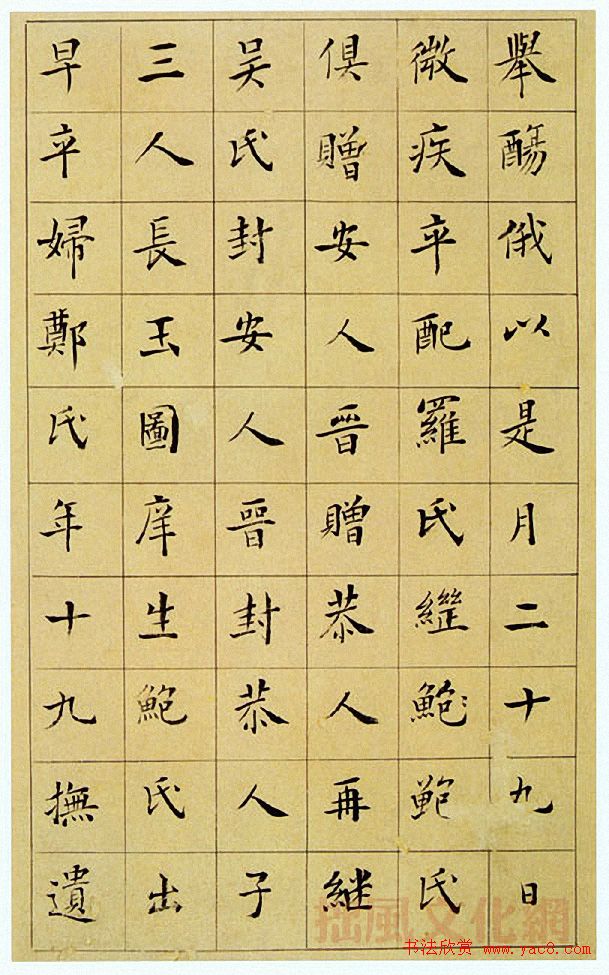 舉觴俄以是月二十九日
微疾卒配羅氏繼鮑鮑氏
俱贈安人晉贈恭人再継
吴氏封安人晉封恭人子
三人長玉圖庠生鮑氏出
早卒婦鄭氏年十九撫遺
揺風文化網
书法欣赏 www.yac8.com